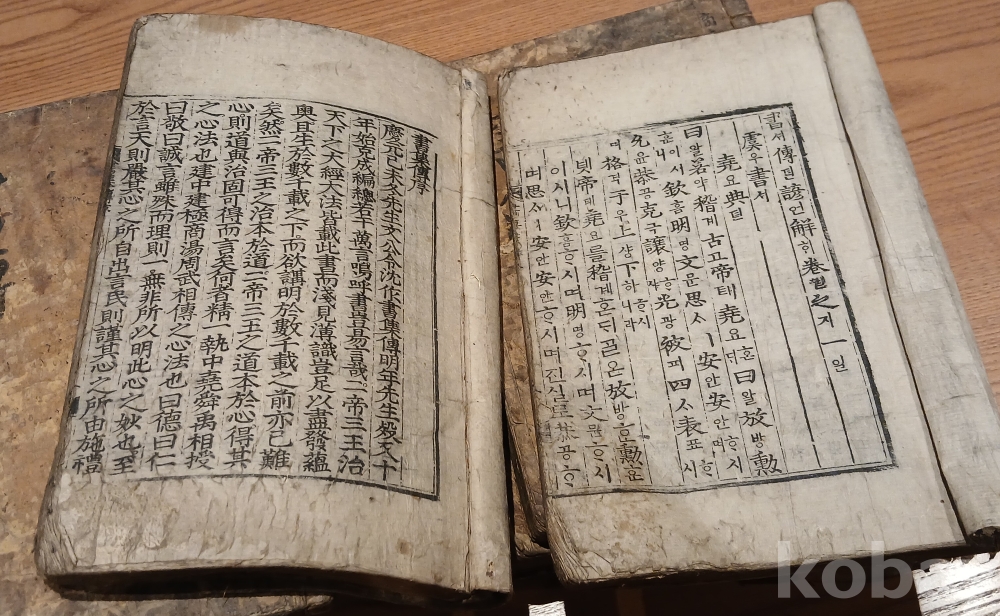 書셔傳뎐諺언解ᄒᆡ卷권之지一일
虞우書셔
堯요典뎐
曰왈若약稽계古고帝뎨堯요ᄒᆞᆫᄃᆡ曰왈放방勳훈
이시니欽흠明명文문思ᄉᆞㅣ安안安안ᄒᆞ시며
允윤恭공克극讓양ᄒᆞ샤光광被피四ᄉᆞ表표ᄒᆞ시
며格격于우上샹下하ᄒᆞ시니라
녯帝뎨堯요를稽계혼ᄃᆡᄀᆞᆯ온放방勳훈
이시니欽흠ᄒᆞ시며明명ᄒᆞ시며文문ᄒᆞ시
며思ᄉᆞㅣ安안安안ᄒᆞ시며진실로恭공ᄒᆞ
書集傳序
慶元己未冬先生文公令沈作書集傳明年先生歿又十
年始克成編總若干萬言嗚呼書豈易言哉二帝三王治
天下之大經大法皆載此書而淺見薄識豈足以盡發蘊
奧且生於數千載之下而欲講明於數千載之前亦已難
矣然二帝三王之治本於道二帝三王之道本於心得其
心則道與治固可得而言矣何者精一執中堯舜禹相授
之心法也建中建極商湯周武相傳之心法也曰德曰仁
曰敬曰誠言雖殊而理則一無非所以明此心之妙也至
於言天則嚴其心之所自出言民則謹其心之所由施禮
koba